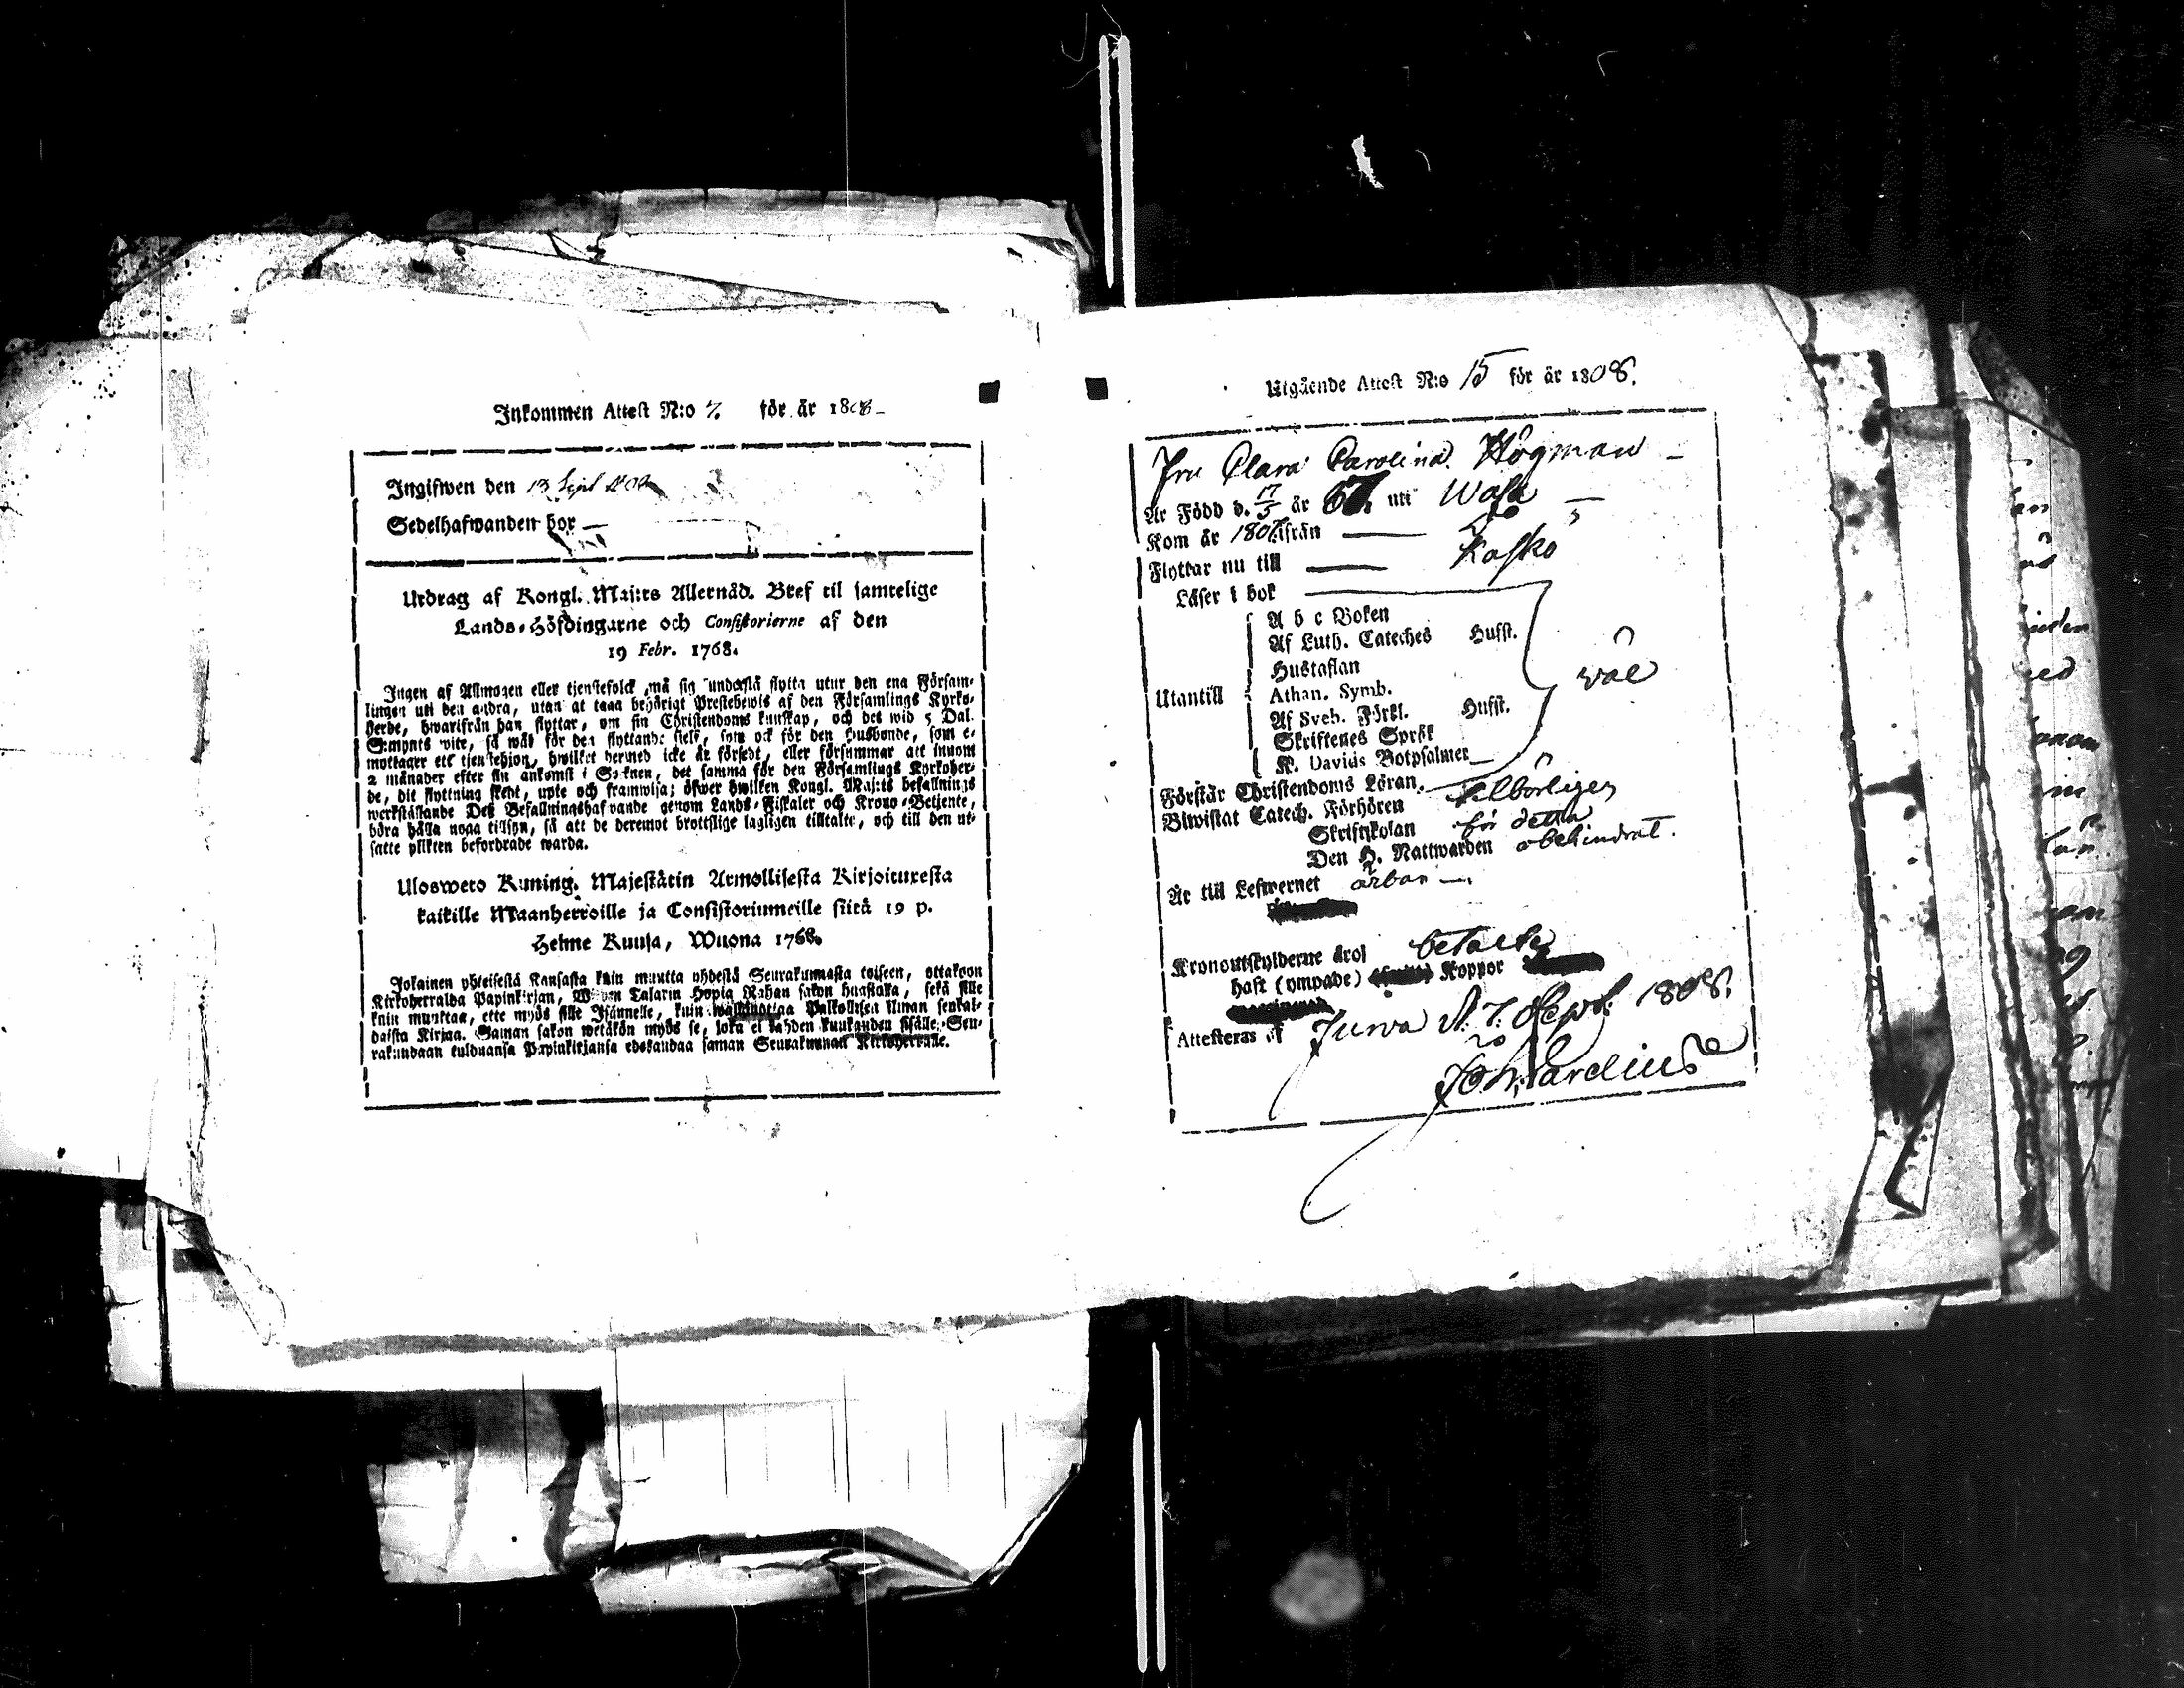 Inkommen Attest N:o 7. för år 1808
Ingifwen den 13 Sept 1808
Sedelhafwanden bor
Utdrag af Kongl. Maj:ts Allernåd. Bref til samtelige
Lands-Höfdingarne och Consistorierne af den
19 Febr. 1768.
Ingen af Allmogen eller tjenstefolck må sig understå flytta utur den ena Församlingen
lingen uti den andra, utan at taga behörigt Prestebewis af den Församlings Kyrko-
herde, hwarifrån han flyttar, om sin Christendoms kunskap, och det wid 5 Dal.
S:mynts wite, så wäl för den flyttande sielf, som ock för den Husbonde, som e-
mottager ett tjenstehion, hwilket hermed icke är försedt, eller försummar att innom
2 månader efter sin ankomst i Socknen, det samma för den Församlings Kyrkoher-
de, dit flyttning skedt, upte och framwisa; öfwer hwilken Kongl. Maj:ts befallnings
werkställande Des Befallningshafwande genom Lands-Fiskaler och Krono-Betjente,
böra hålla noga tillsyn, så att de deremot brottslige lagligen tilltalte, och till den ut-
satte plikten befordrade warda.
Ulosweto Kuning. Majestätin Armollisesta Kirjoituxesta
kaikille Maanherroille ja Consistoriumeille siitä 19 p.
Helme Kuusa, Wuona 1768.
Jokainen yhteisestä Kansasta kuin muutta yhdestä Seurakunnasta toiseen, ottakoon
Kirkoherralda Papinkirjan, Wijden Talarin Hopia Rahan sakon haastalla, sekä sille
kuin muuttaa, ette myös sille Isännelle, kuin wastanottaa Palkollisen ilman senkal-
daista Kirjaa. Saman sakon wetäkön myös se, joka ei kahden kuukauden sisälle, Seu-
rakundaan tulduansa Papinkirjansa edeskandaa saman Seurakunnan Kirkoherralle.
Utgående Attest N:o 15 för år 1808.
Fru Clara Carolina Högman
Är Född d. 17/5 år 67. uti Wasa
Kom år 1807 ifrån
Flyttar nu till Kaskö
Läser i bok
A b c Boken
Af Luth. Cateches Hufst.
Hustaflan
Utantill Athan. Symb. wäl
Af Sveb. Förkl. Hufst.
Skriftenes Språk
K. Davids Botpsalmer
Förstår Christendoms Läran.
Biwistat Catech. Förhören
Skriftskolan för detta
Den H. Nattwarden obehindrat.
Är till Lefwernet ärbar
Kronoutskylderne äro betalte
haft (ympade) Koppor
Attesteras af Juwa d. 7. Sept. 1808.